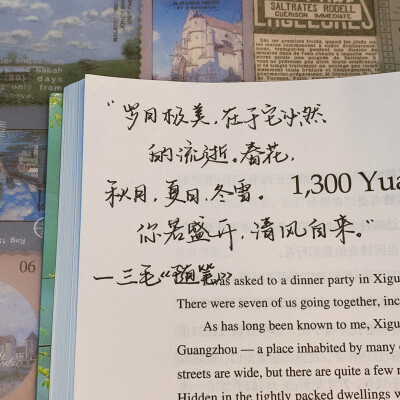 SALTRATES RODELL
GUÉRISON IMMÉDIATE
"岁月极美,在于它必然
的流逝。春花,
秋月,夏日,冬雪。
1,300 Yua
你若盛开,清风自来。"
—三毛《随笔》
was asked to a dinner party in Xigu
There were seven of us going together, inc
As has long been known to me, Xigu
Guangzhou — a place inhabited by many
streets are wide, but there are quite a few
Hidden in the tightly packed dwellings w
06